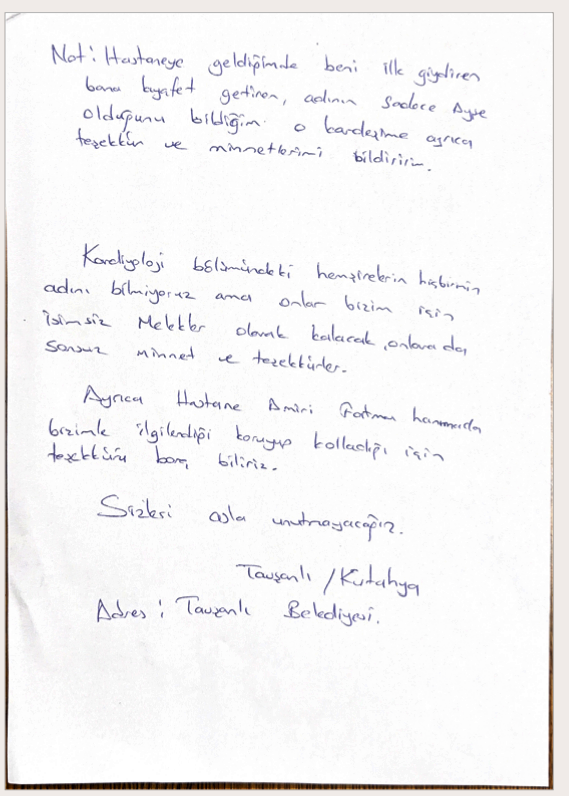 Not: Hastaneye geldiğimde beni ilk giydiren
bana kıyafet getiren, adının sadece Ayşe
olduğunu bildiğim o kardeşime ayrıca
teşekkür ve minnetlerimi bildiririm.
Kardiyoloji bölümündeki hemşirelerin hiçbirinin
adını bilmiyoruz ama onlar bizim için
isimsiz Melekler olarak kalacak, onlara da
sonsuz minnet ve teşekkürler.
Ayrıca Hastane Amiri Fatma hanımında
bizimle ilgilendiği koruyup kolladığı için
teşekkürü borç biliriz.
Sizleri asla unutmayacağız.
Tavşanlı / Kütahya
Adres : Tavşanlı Belediyesi.